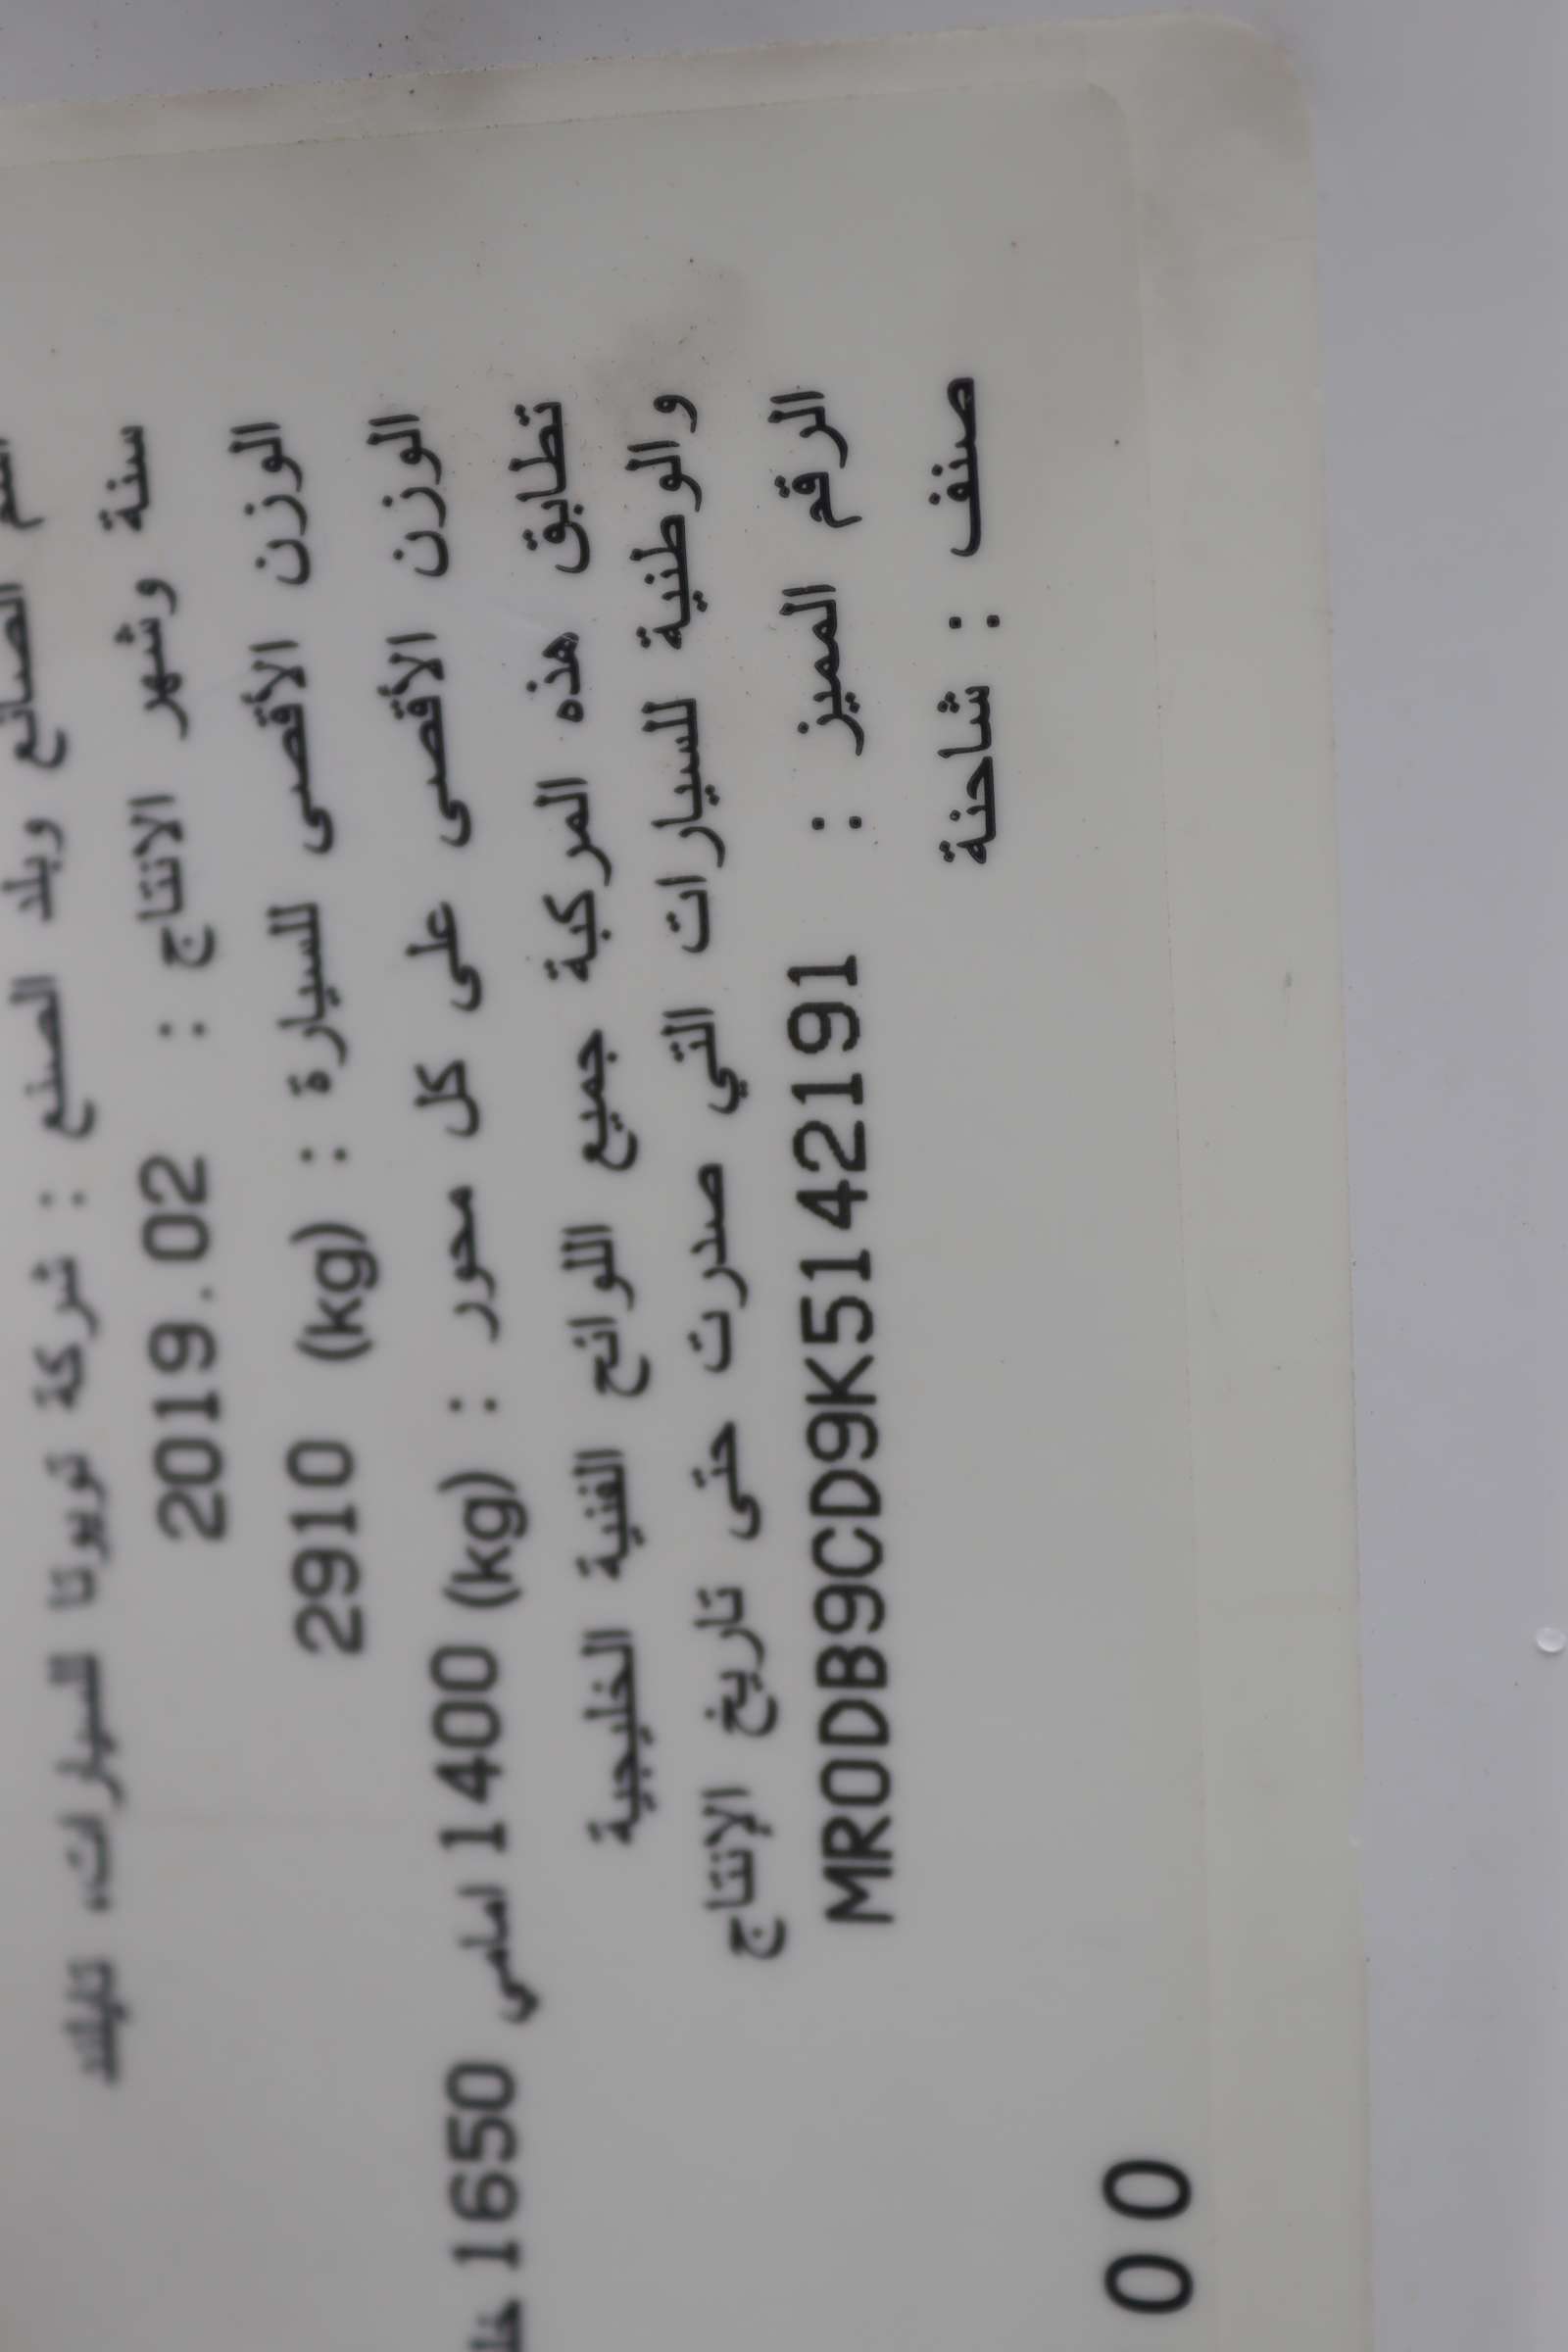 اسم الصانع وبلد الصنع : شركة تويوتا للسيارات، تايلند
سنة وشهر الانتاج : 2019.02
الوزن الأقصى للسيارة : (kg) 2910
الوزن الأقصى على كل محور : (kg) 1400 امامي 1650
تطابق هذه المركبة جميع اللوائح الفنية الخليجية
والوطنية للسيارات التي صدرت حتى تاريخ الإنتاج
الرقم المميز : MR0DB9CD9K5142191
صنف : شاحنة
00